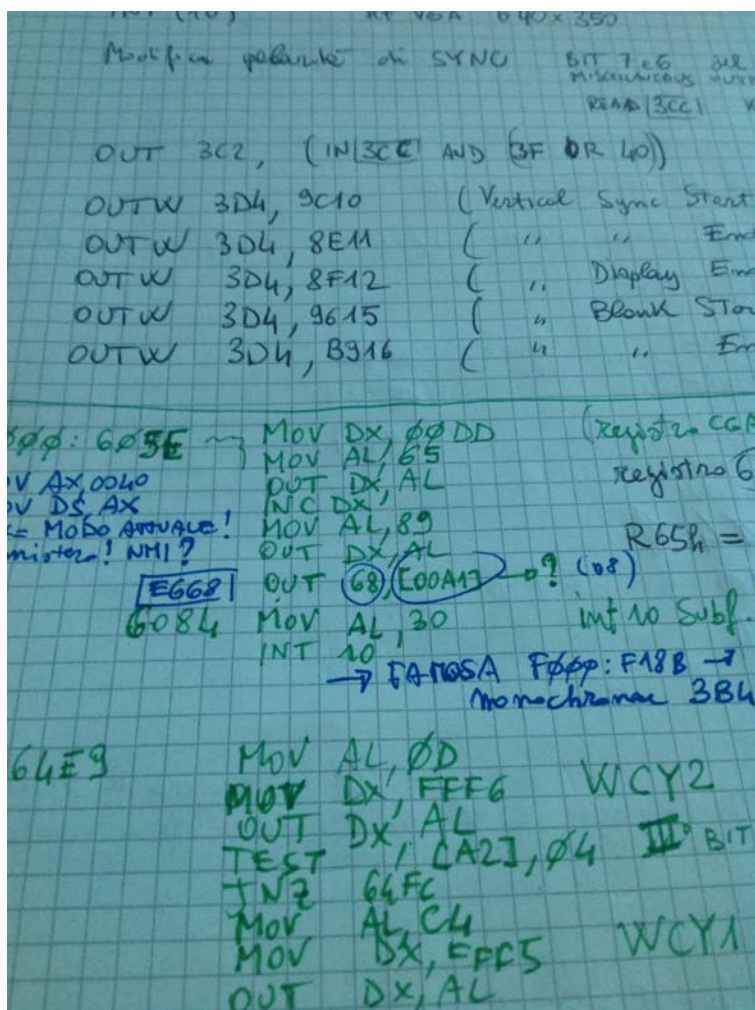 INT (10) RT VGA 640x350
Modifica polarità di SYNC BIT 7 e 6 del
MISCELLANEOUS OUTP
READ 3CC
OUT 3C2, (IN 3CC AND (3F OR 40))
OUTW 3D4, 9C10 (Vertical Sync Start
OUTW 3D4, 8E11 ( " " End
OUTW 3D4, 8F12 ( " Display En
OUTW 3D4, 9615 ( " Blank Star
OUTW 3D4, B916 ( " " En
ØØØ: 605E MOV DX, ØØDD (registro CGA
MOV AL, 65
V AX, 0040 OUT DX, AL registro 6
OV DS, AX INC DX
= MODO ATTUALE! MOV AL, 89
mistero! NMI? OUT DX, AL R65h =
E668 OUT 68, [00A1] → ? (08)
6084 MOV AL, 30 int 10 Subf.
INT 10
→ FAMOSA FØØØ: F18B →
monochrome 3B4
64E9 MOV AL, ØD
MOV DX, FFF6 WCY2
OUT DX, AL
TEST [A2], Ø4 III° BIT
JNZ 64FC
MOV AL, C4
MOV DX, FFF5 WCY1
OUT DX, AL